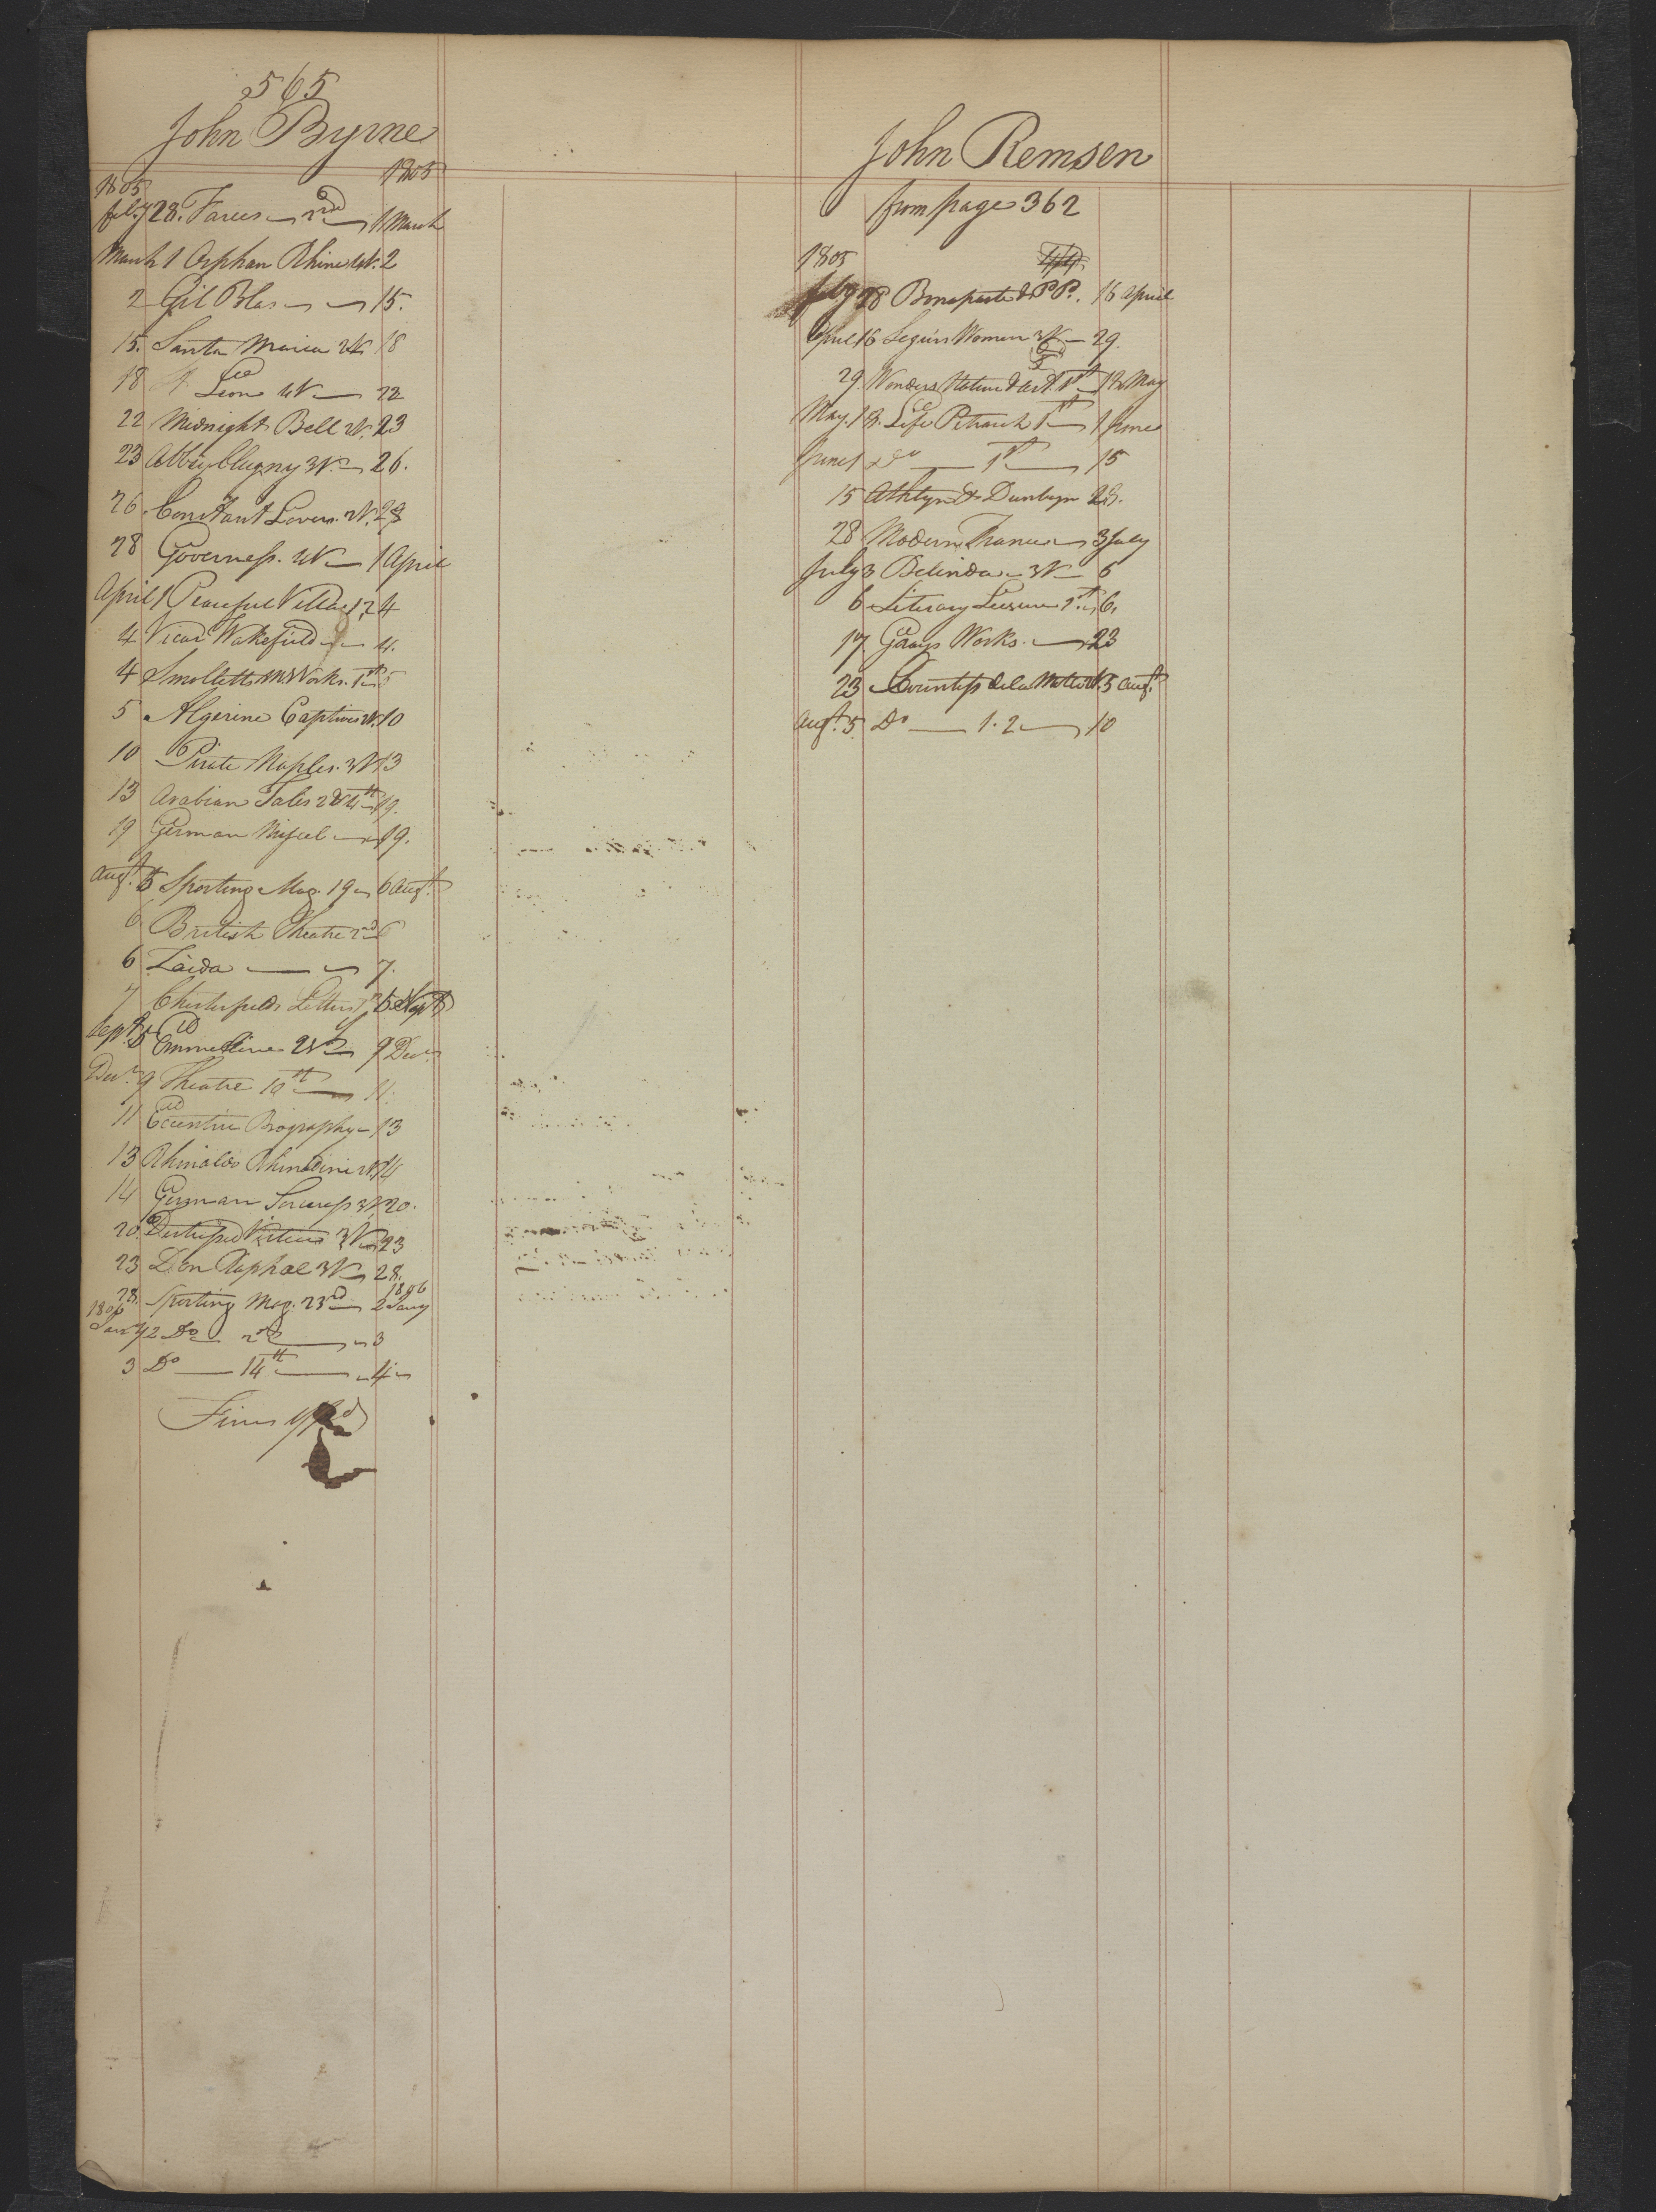 565
John Byrne
1805 1805
feb.y 28. Farces 2nd 1 March
March 1 Orphan Rhine 4V. 2
2 Gil Blas 15.
15. Santa Maria 2V 18
18 St Leon 4V 22
22 Midnight Bell 2V. 23
23 Abbey Clugny 3V. 26.
26 Constant Lovers. 2V. 28
28 Governess. 4V 1 April
April 1 Peaceful Villa 1,2 4
4 Vicar Wakefield 4.
4 Smolletts Works. 1st 5
5 Algerine Captive 2V. 10
10 Pirate Naples. 3V 13
13 Arabian Tales 2 & 4th 19.
19 German Miscel 19.
Augt. 5 Sporting Mag. 19 6 Augt.
6 British Theatre 2nd 6
6 Zaida 7.
7 Chesterfields Letters 5 Sept
Sept 5 Emmeline 2V 9 Decr.
Decr. 9 Theatre 10th 11.
11 Eccentric Biography 13
13 Rhinaldo Rhinaldini 2V. 14
14 German Sorceress 3V. 20.
20 Virtue 3V 23
23 Don Raphael 3V 28.
28. Sporting Mag. 23rd 1806 2 Jany
1806
Jany 2 Do 2nd 3
3 Do 14th 4
Fines
John Remsen
from page 362
1805
feby 28 Bonaparte & P. 16 April
April 16 Segurs Women 3V 29.
29. Wonders Nature & Art. 1st 18 May
May. 18. Life Petrarch 1st 1 June
June 1 Do 1st 15
15 Athlyn & Dunbayn 28.
28 Modern France 3 July
July 3 Belinda 3V 6
6 Literary Leisure 1st 6.
17 Grays Works. 23
23 Countess de la Motte 5 Augt.
Augt. 5 Do 1. 2 10